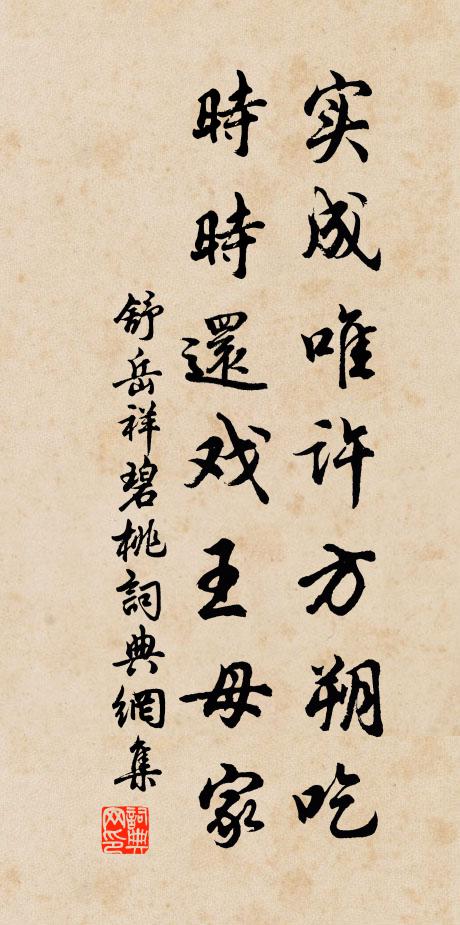 实成唯许方朔吃
時時還戏王母家
舒岳祥碧桃詞典網集
詞典网印